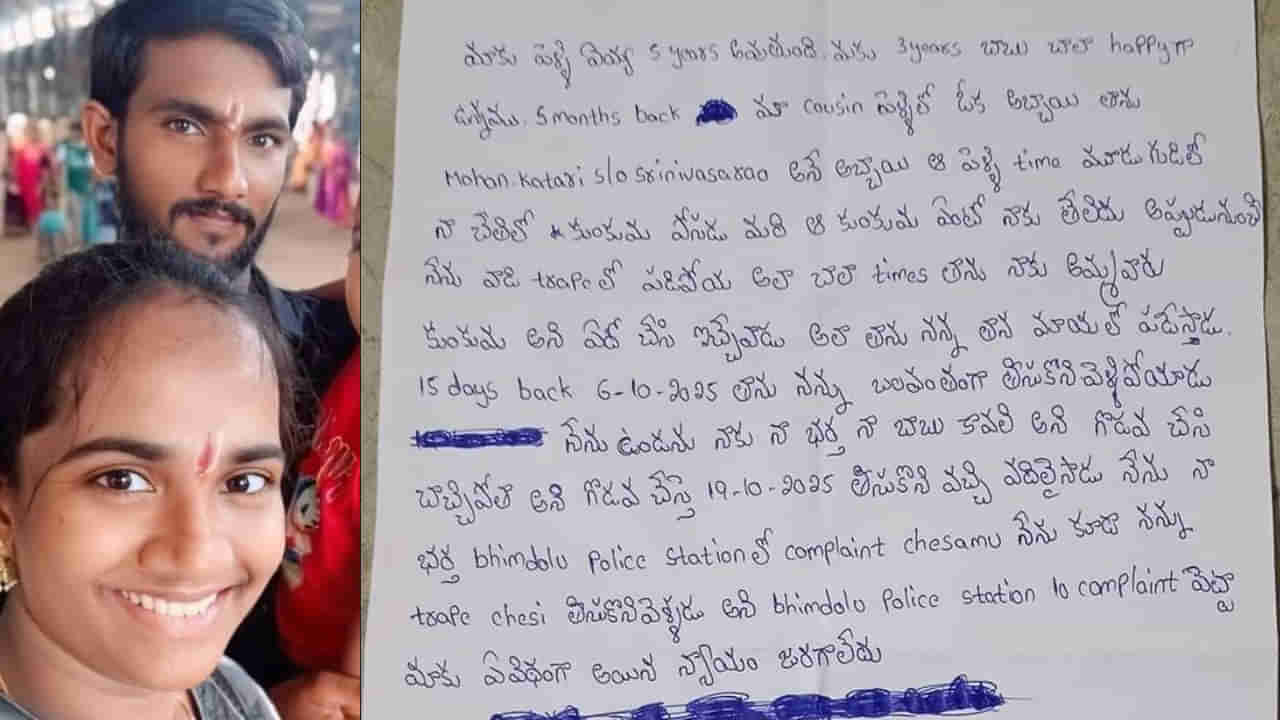 మాకు పెళ్ళి అయ్యి 5 years అవుతుంది. మకు 3 years బాబు చాలా happy గా
ఉన్నము. 5 months back మా cousin పెళ్ళిలో ఓక అబ్బాయి తాను
Mohan.Katari s/o Srinivasarao అనే అబ్బాయి ఆ పెళ్ళి time మూడు గుడిలో
నా చేతిలో కుంకుమ వేసడు మరి ఆ కుంకుమ ఏంటో నాకు తేలిదు అప్పుడునుంచి
నేను వాడి trape లో పడిపోయ అలా చాలా times తాను నాకు అమ్మవారు
కుంకుమ అని ఏదో చేసి ఇచ్చేవాడు అలా తాను నన్ను తాన మాయలో పడేస్తాడు.
15 days back 6-10-2025 తాను నన్ను బలవంతంగా తీసుకొని వెళ్ళిపోయాడు
నేను ఉండను నాకు నా భర్త నా బాబు కావలి అని గొడవ చేసి
చాచ్చిపోతా అని గొడవ చేస్తె 19-10-2025 తీసుకొని వచ్చి వదిలైసాడు నేను నా
భర్త bhimdolu police station లో complaint chesamu నేను కూడా నన్ను
trape chesi తీసుకొనివెళ్ళడు అని bhimdolu police station lo complaint పెట్టా
మాకు ఏవిధంగా అయిన న్యాయం జరగాలేదు